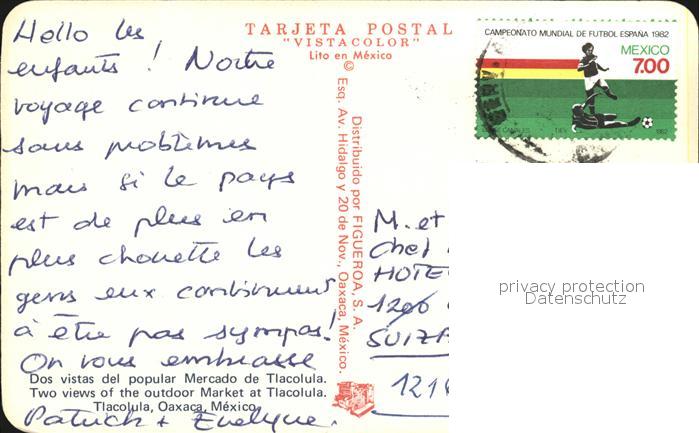 Hello les
enfants ! Notre
voyage continue
sans problèmes
mais si le pays
est de plus en
plus chouette les
gens eux continuent
à être pas sympas!
On vous embrasse
Patrick + Evelyne.
TARJETA POSTAL
"VISTACOLOR"
Lito en México
©
Distribuido por FIGUEROA, S. A.
Esq. Av. Hidalgo y 20 de Nov., Oaxaca, México.
Dos vistas del popular Mercado de Tlacolula.
Two views of the outdoor Market at Tlacolula.
Tlacolula, Oaxaca, México.
CAMPEONATO MUNDIAL DE FUTBOL ESPAÑA 1982
MEXICO
7.00
1982
M. et
Chef
HOTE
1206
SUIZ
121
privacy protection
Datenschutz